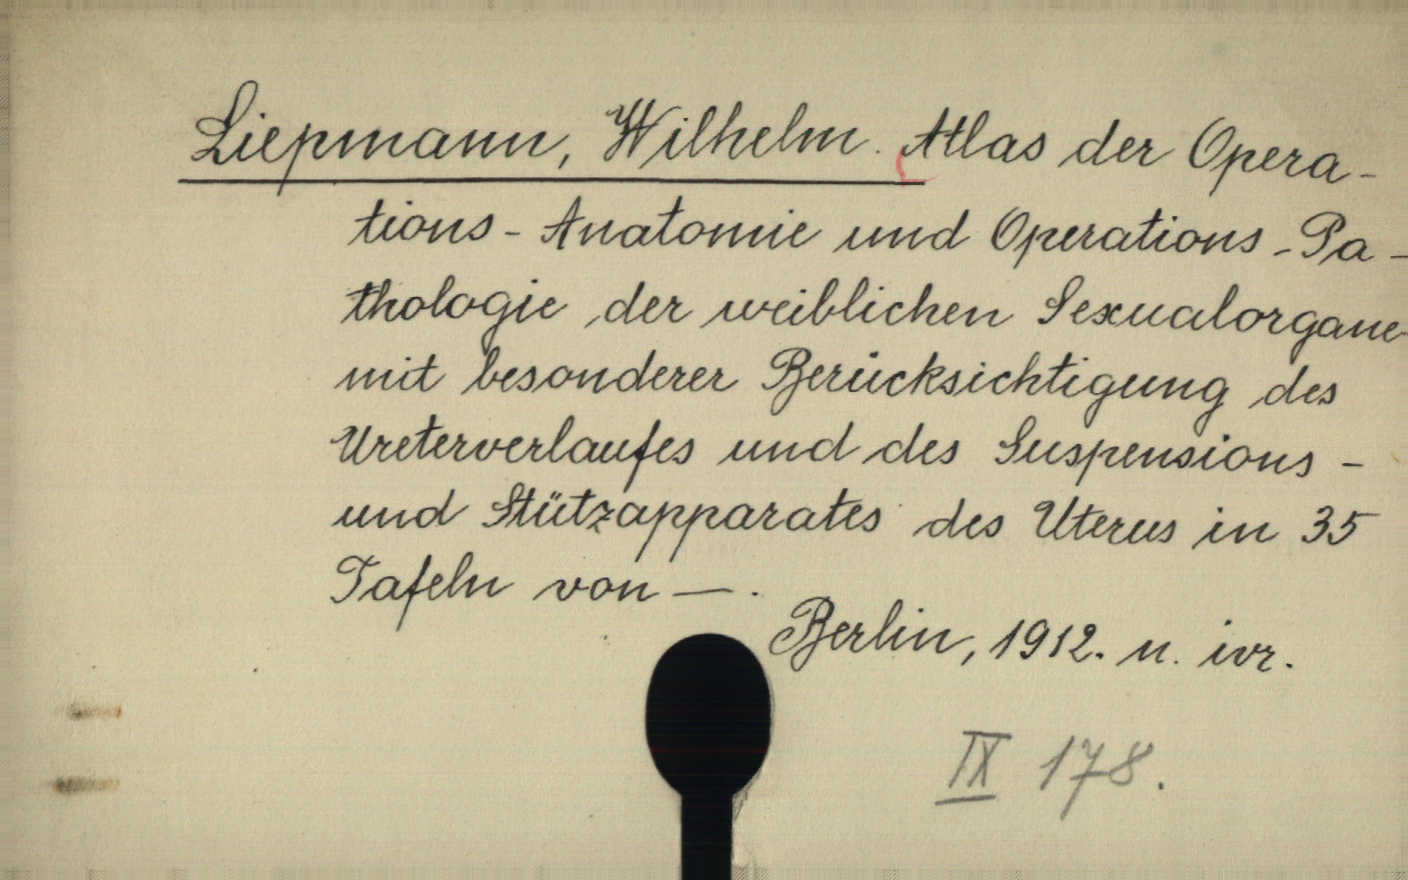 Liepmann, Wilhelm. Atlas der Opera-
tions-Anatomie und Operations-Pa-
thologie der weiblichen Sexualorgane
mit besonderer Berücksichtigung des
Ureterverlaufes und des Suspensions-
und Stützapparates des Uterus in 35
Tafeln von —.
Berlin, 1912. n. ivr.
IX 178.